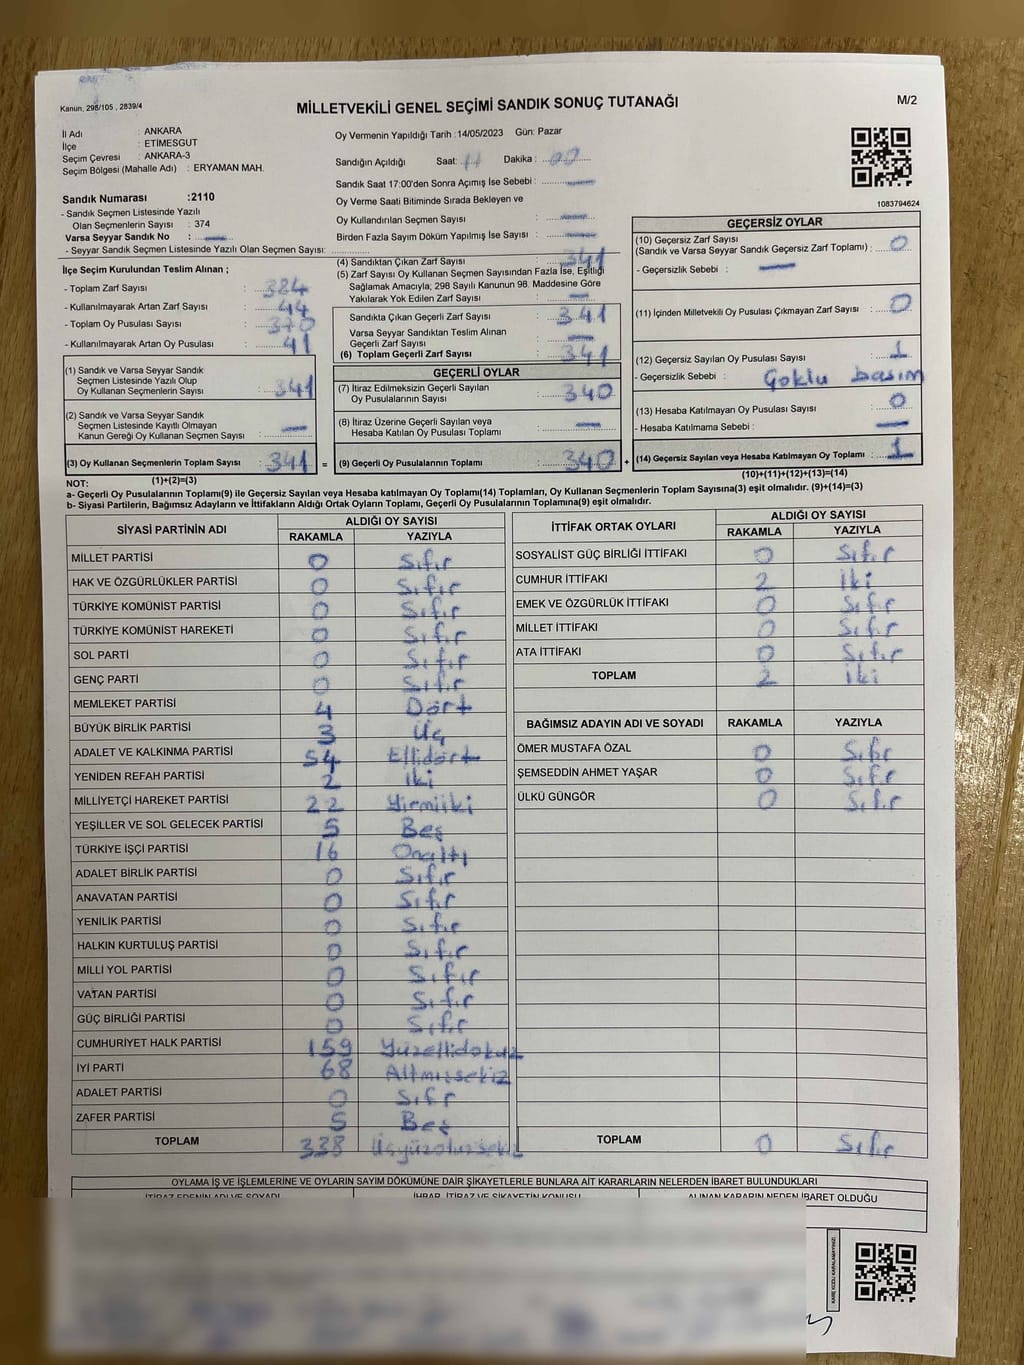 Kanun, 298/105 , 2839/4
MİLLETVEKİLİ GENEL SEÇİMİ SANDIK SONUÇ TUTANAĞI
M/2
İl Adı : ANKARA
İlçe : ETİMESGUT
Seçim Çevresi : ANKARA-3
Seçim Bölgesi (Mahalle Adı) : ERYAMAN MAH.
Oy Vermenin Yapıldığı Tarih :14/05/2023 Gün: Pazar
Sandığın Açıldığı Saat: Dakika :
Sandık Saat 17:00'den Sonra Açımış İse Sebebi : —
Oy Verme Saati Bitiminde Sırada Bekleyen ve
Oy Kullandırılan Seçmen Sayısı : —
Birden Fazla Sayım Döküm Yapılmış İse Sayısı : —
1083794624
Sandık Numarası :2110
- Sandık Seçmen Listesinde Yazılı
Olan Seçmenlerin Sayısı : 374
Varsa Seyyar Sandık No : —
- Seyyar Sandık Seçmen Listesinde Yazılı Olan Seçmen Sayısı:
İlçe Seçim Kurulundan Teslim Alınan ;
- Toplam Zarf Sayısı : 384
- Kullanılmayarak Artan Zarf Sayısı : 44
- Toplam Oy Pusulası Sayısı : 370
- Kullanılmayarak Artan Oy Pusulası : 41
(1) Sandık ve Varsa Seyyar Sandık
Seçmen Listesinde Yazılı Olup
Oy Kullanan Seçmenlerin Sayısı : 341
(2) Sandık ve Varsa Seyyar Sandık
Seçmen Listesinde Kayıtlı Olmayan
Kanun Gereği Oy Kullanan Seçmen Sayısı : —
(3) Oy Kullanan Seçmenlerin Toplam Sayısı : 341
(1)+(2)=(3)
(4) Sandıktan Çıkan Zarf Sayısı : 341
(5) Zarf Sayısı Oy Kullanan Seçmen Sayısından Fazla İse, Eşitliği
Sağlamak Amacıyla; 298 Sayılı Kanunun 98. Maddesine Göre
Yakılarak Yok Edilen Zarf Sayısı : —
Sandıkta Çıkan Geçerli Zarf Sayısı : 341
Varsa Seyyar Sandıktan Teslim Alınan
Geçerli Zarf Sayısı : —
(6) Toplam Geçerli Zarf Sayısı : 341
GEÇERLİ OYLAR
(7) İtiraz Edilmeksizin Geçerli Sayılan
Oy Pusulalarının Sayısı : 340
(8) İtiraz Üzerine Geçerli Sayılan veya
Hesaba Katılan Oy Pusulası Toplamı : —
= (9) Geçerli Oy Pusulalarının Toplamı : 340 +
GEÇERSİZ OYLAR
(10) Geçersiz Zarf Sayısı
(Sandık ve Varsa Seyyar Sandık Geçersiz Zarf Toplamı) : 0
- Geçersizlik Sebebi : —
(11) İçinden Milletvekili Oy Pusulası Çıkmayan Zarf Sayısı : 0
(12) Geçersiz Sayılan Oy Pusulası Sayısı : 1
- Geçersizlik Sebebi : Çoklu basım
(13) Hesaba Katılmayan Oy Pusulası Sayısı : 0
- Hesaba Katılmama Sebebi : —
(14) Geçersiz Sayılan veya Hesaba Katılmayan Oy Toplamı : 1
(10)+(11)+(12)+(13)=(14)
NOT:
a- Geçerli Oy Pusulalarının Toplamı(9) ile Geçersiz Sayılan veya Hesaba katılmayan Oy Toplamı(14) Toplamları, Oy Kullanan Seçmenlerin Toplam Sayısına(3) eşit olmalıdır. (9)+(14)=(3)
b- Siyasi Partilerin, Bağımsız Adayların ve İttifakların Aldığı Ortak Oyların Toplamı, Geçerli Oy Pusulalarının Toplamına(9) eşit olmalıdır.
SİYASİ PARTİNİN ADI ALDIĞI OY SAYISI
RAKAMLA YAZIYLA
MİLLET PARTİSİ 0 Sıfır
HAK VE ÖZGÜRLÜKLER PARTİSİ 0 Sıfır
TÜRKİYE KOMÜNİST PARTİSİ 0 Sıfır
TÜRKİYE KOMÜNİST HAREKETİ 0 Sıfır
SOL PARTİ 0 Sıfır
GENÇ PARTİ 0 Sıfır
MEMLEKET PARTİSİ 4 Dört
BÜYÜK BİRLİK PARTİSİ 3 Üç
ADALET VE KALKINMA PARTİSİ 54 Ellidört
YENİDEN REFAH PARTİSİ 2 iki
MİLLİYETÇİ HAREKET PARTİSİ 22 Yirmiiki
YEŞİLLER VE SOL GELECEK PARTİSİ 5 Beş
TÜRKİYE İŞÇİ PARTİSİ 16 Onaltı
ADALET BİRLİK PARTİSİ 0 Sıfır
ANAVATAN PARTİSİ 0 Sıfır
YENİLİK PARTİSİ 0 Sıfır
HALKIN KURTULUŞ PARTİSİ 0 Sıfır
MİLLİ YOL PARTİSİ 0 Sıfır
VATAN PARTİSİ 0 Sıfır
GÜÇ BİRLİĞİ PARTİSİ 0 Sıfır
CUMHURİYET HALK PARTİSİ 159 Yüzellidokuz
İYİ PARTİ 68 Altmışsekiz
ADALET PARTİSİ 0 Sıfır
ZAFER PARTİSİ 5 Beş
TOPLAM 338 Üçyüzotuzsekiz
İTTİFAK ORTAK OYLARI ALDIĞI OY SAYISI
RAKAMLA YAZIYLA
SOSYALİST GÜÇ BİRLİĞİ İTTİFAKI 0 Sıfır
CUMHUR İTTİFAKI 2 iki
EMEK VE ÖZGÜRLÜK İTTİFAKI 0 Sıfır
MİLLET İTTİFAKI 0 Sıfır
ATA İTTİFAKI 0 Sıfır
TOPLAM 2 iki
BAĞIMSIZ ADAYIN ADI VE SOYADI RAKAMLA YAZIYLA
ÖMER MUSTAFA ÖZAL 0 Sıfır
ŞEMSEDDİN AHMET YAŞAR 0 Sıfır
ÜLKÜ GÜNGÖR 0 Sıfır
TOPLAM 0 Sıfır
OYLAMA İŞ VE İŞLEMLERİNE VE OYLARIN SAYIM DÖKÜMÜNE DAİR ŞİKAYETLERLE BUNLARA AİT KARARLARIN NELERDEN İBARET BULUNDUKLARI
İTİRAZ EDENİN ADI VE SOYADI İHBAR, İTİRAZ VE ŞİKAYETİN KONUSU ALINAN KARARIN NEDEN İBARET OLDUĞU
KARE KODU KARALAMAYINIZ!